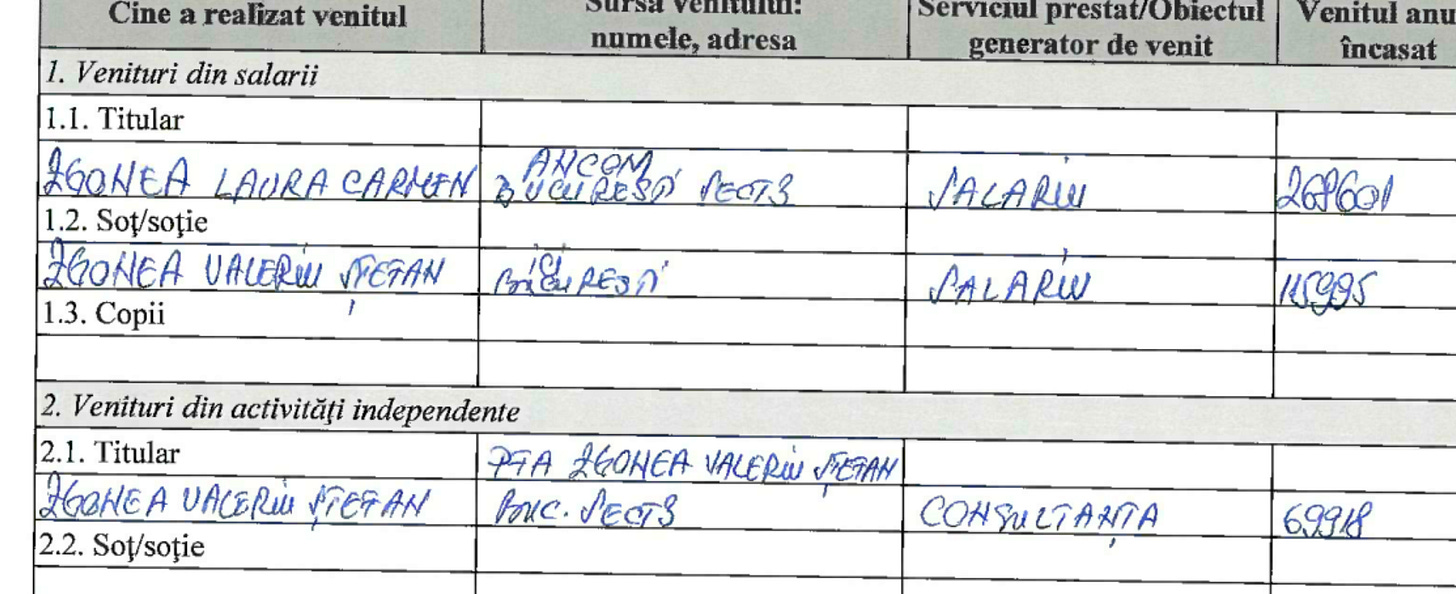 Cine a realizat venitul Sursa venitului: Serviciul prestat/Obiectul Venitul anu
numele, adresa generator de venit încasat
1. Venituri din salarii
1.1. Titular
ANCOM
ZGONEA LAURA CARMEN BUCUREȘTI SECT3 SALARIU 269601
1.2. Soţ/soţie
ZGONEA VALERIU ȘTEFAN BUCUREȘTI SALARIU 115995
1.3. Copii
2. Venituri din activităţi independente
2.1. Titular PFA ZGONEA VALERIU ȘTEFAN
ZGONEA VALERIU ȘTEFAN BUC. SECT3 CONSULTANȚA 69918
2.2. Soţ/soţie